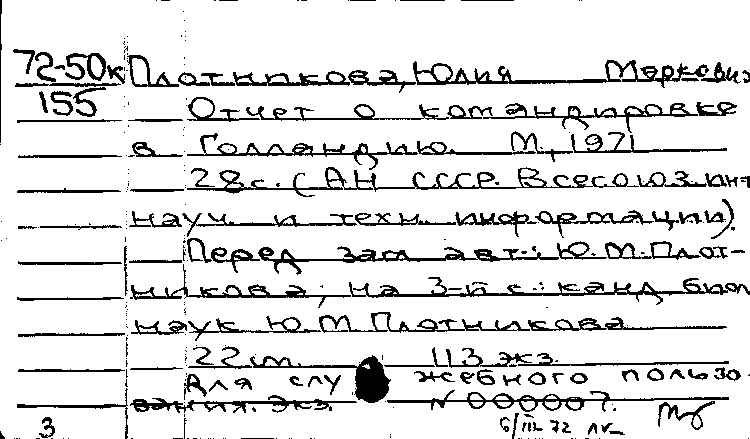 72-50к Плотникова, Юлия Марковна
155 Отчет о командировке
в Голландию. М., 1971
28с. (АН СССР. Всесоюз. инт
науч. и техн. информации).
Перед загл. авт.: Ю.М.Плот-
никова; на 3-й с.: канд. биол
наук Ю.М.Плотникова
22 см. 113 экз.
Для служебного пользо-
вания. Экз. N 000007.
3 6/III-72